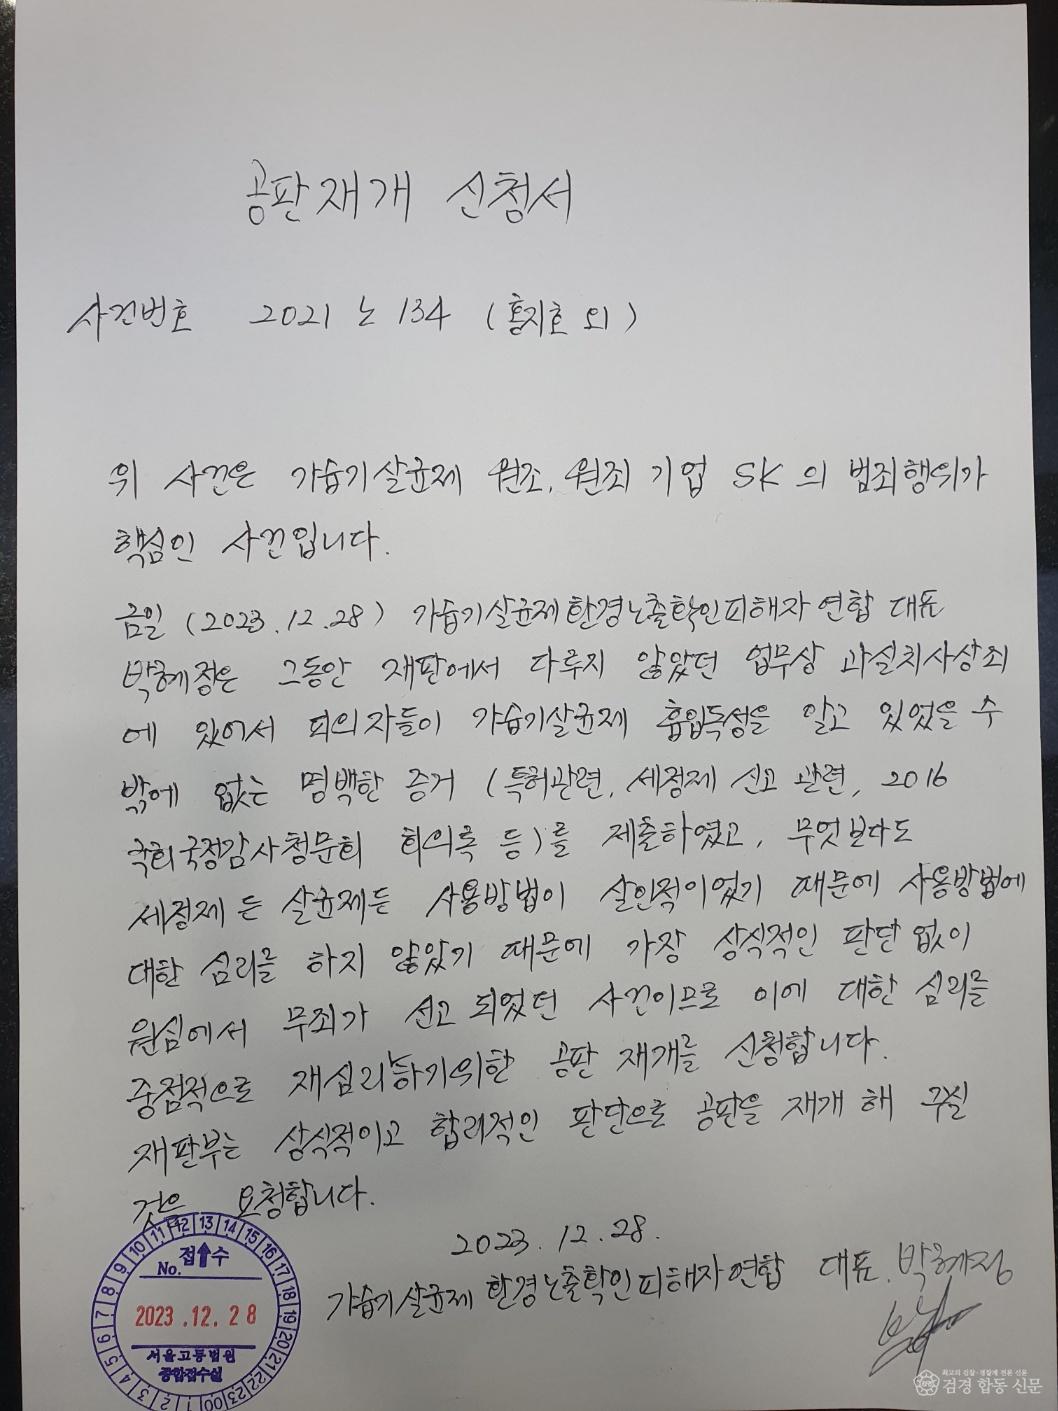 공판재개 신청서
사건번호 2021 노 134 (홍지호 외)
위 사건은 가습기살균제 원조, 원죄 기업 SK의 범죄행위가
핵심인 사건입니다.
금일 (2023.12.28) 가습기살균제환경노출확인피해자연합 대표
박혜정은 그동안 재판에서 다루지 않았던 업무상 과실치사상죄
에 있어서 피의자들이 가습기살균제 흡입독성을 알고 있었을 수
밖에 없는 명백한 증거 (특허관련, 세정제 신고 관련, 2016
국회국정감사청문회 회의록 등)를 제출하였고, 무엇보다도
세정제 든 살균제든 사용방법이 살인적이었기 때문에 사용방법에
대한 심리를 하지 않았기 때문에 가장 상식적인 판단 없이
원심에서 무죄가 선고 되었던 사건이므로 이에 대한 심리를
중점적으로 재심리하기위한 공판 재개를 신청합니다.
재판부는 상식적이고 합리적인 판단으로 공판을 재개 해 주실
것을 요청합니다.
2023. 12. 28.
가습기살균제 환경노출확인피해자연합 대표. 박혜정
접수
No.
2023.12.28
서울고등법원
종합접수실
최고의 검찰·경찰에 전문 신문
검경합동신문